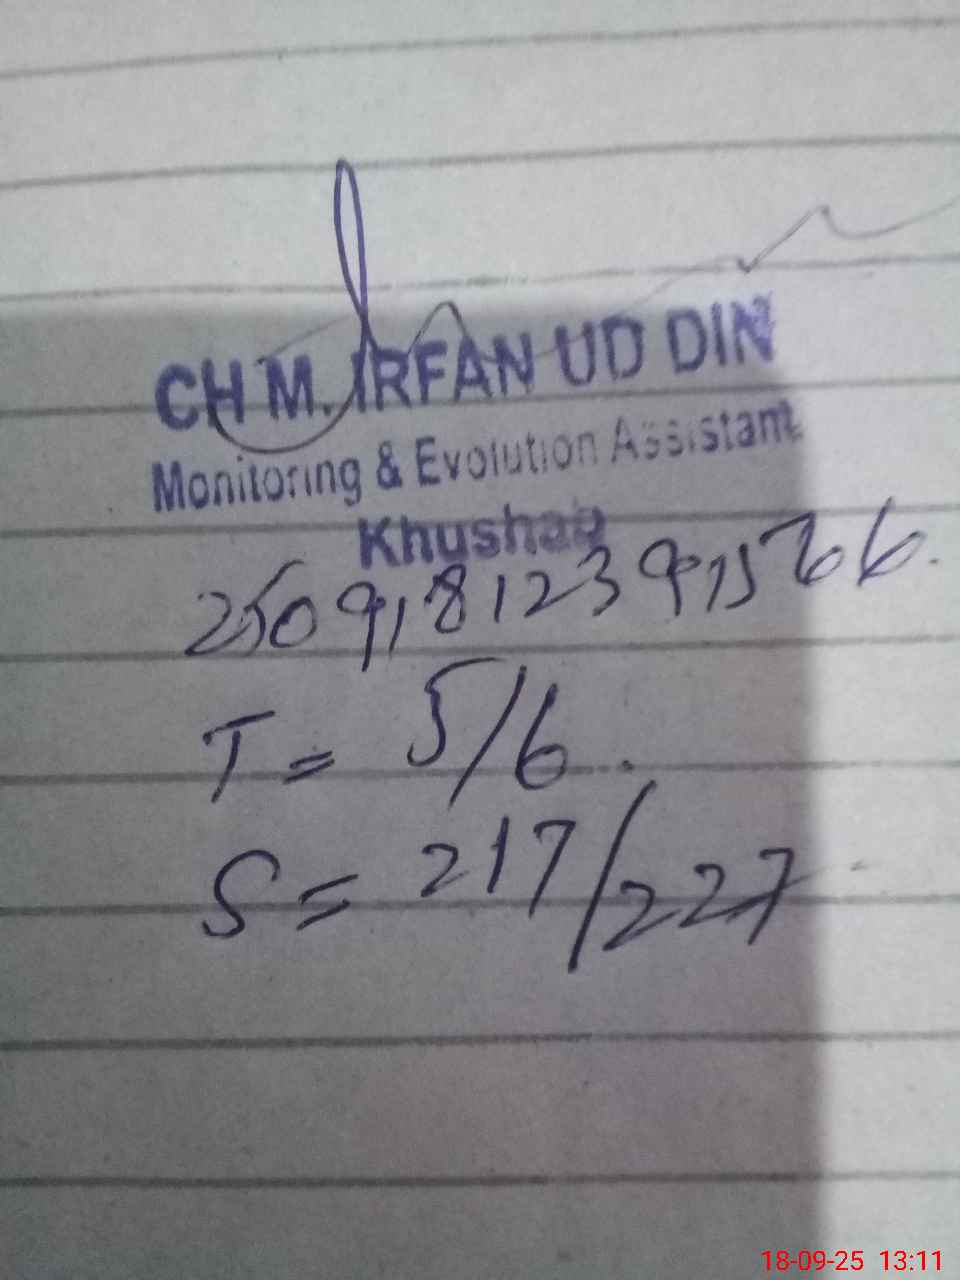 CH M. IRFAN UD DIN
Monitoring & Evolution Assistant
Khushab
25091812391566.
T = 5/6.
S = 217/227
18-09-25 13:11